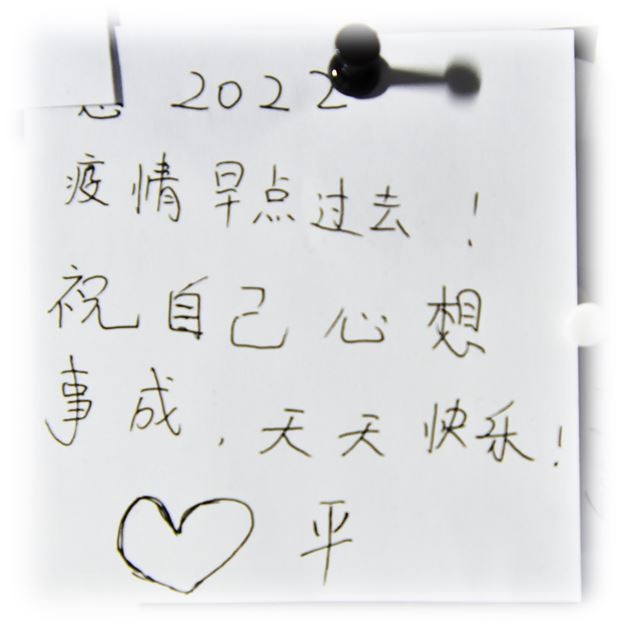 2022
疫情早点过去！
祝自己心想
事成，天天快乐！
平